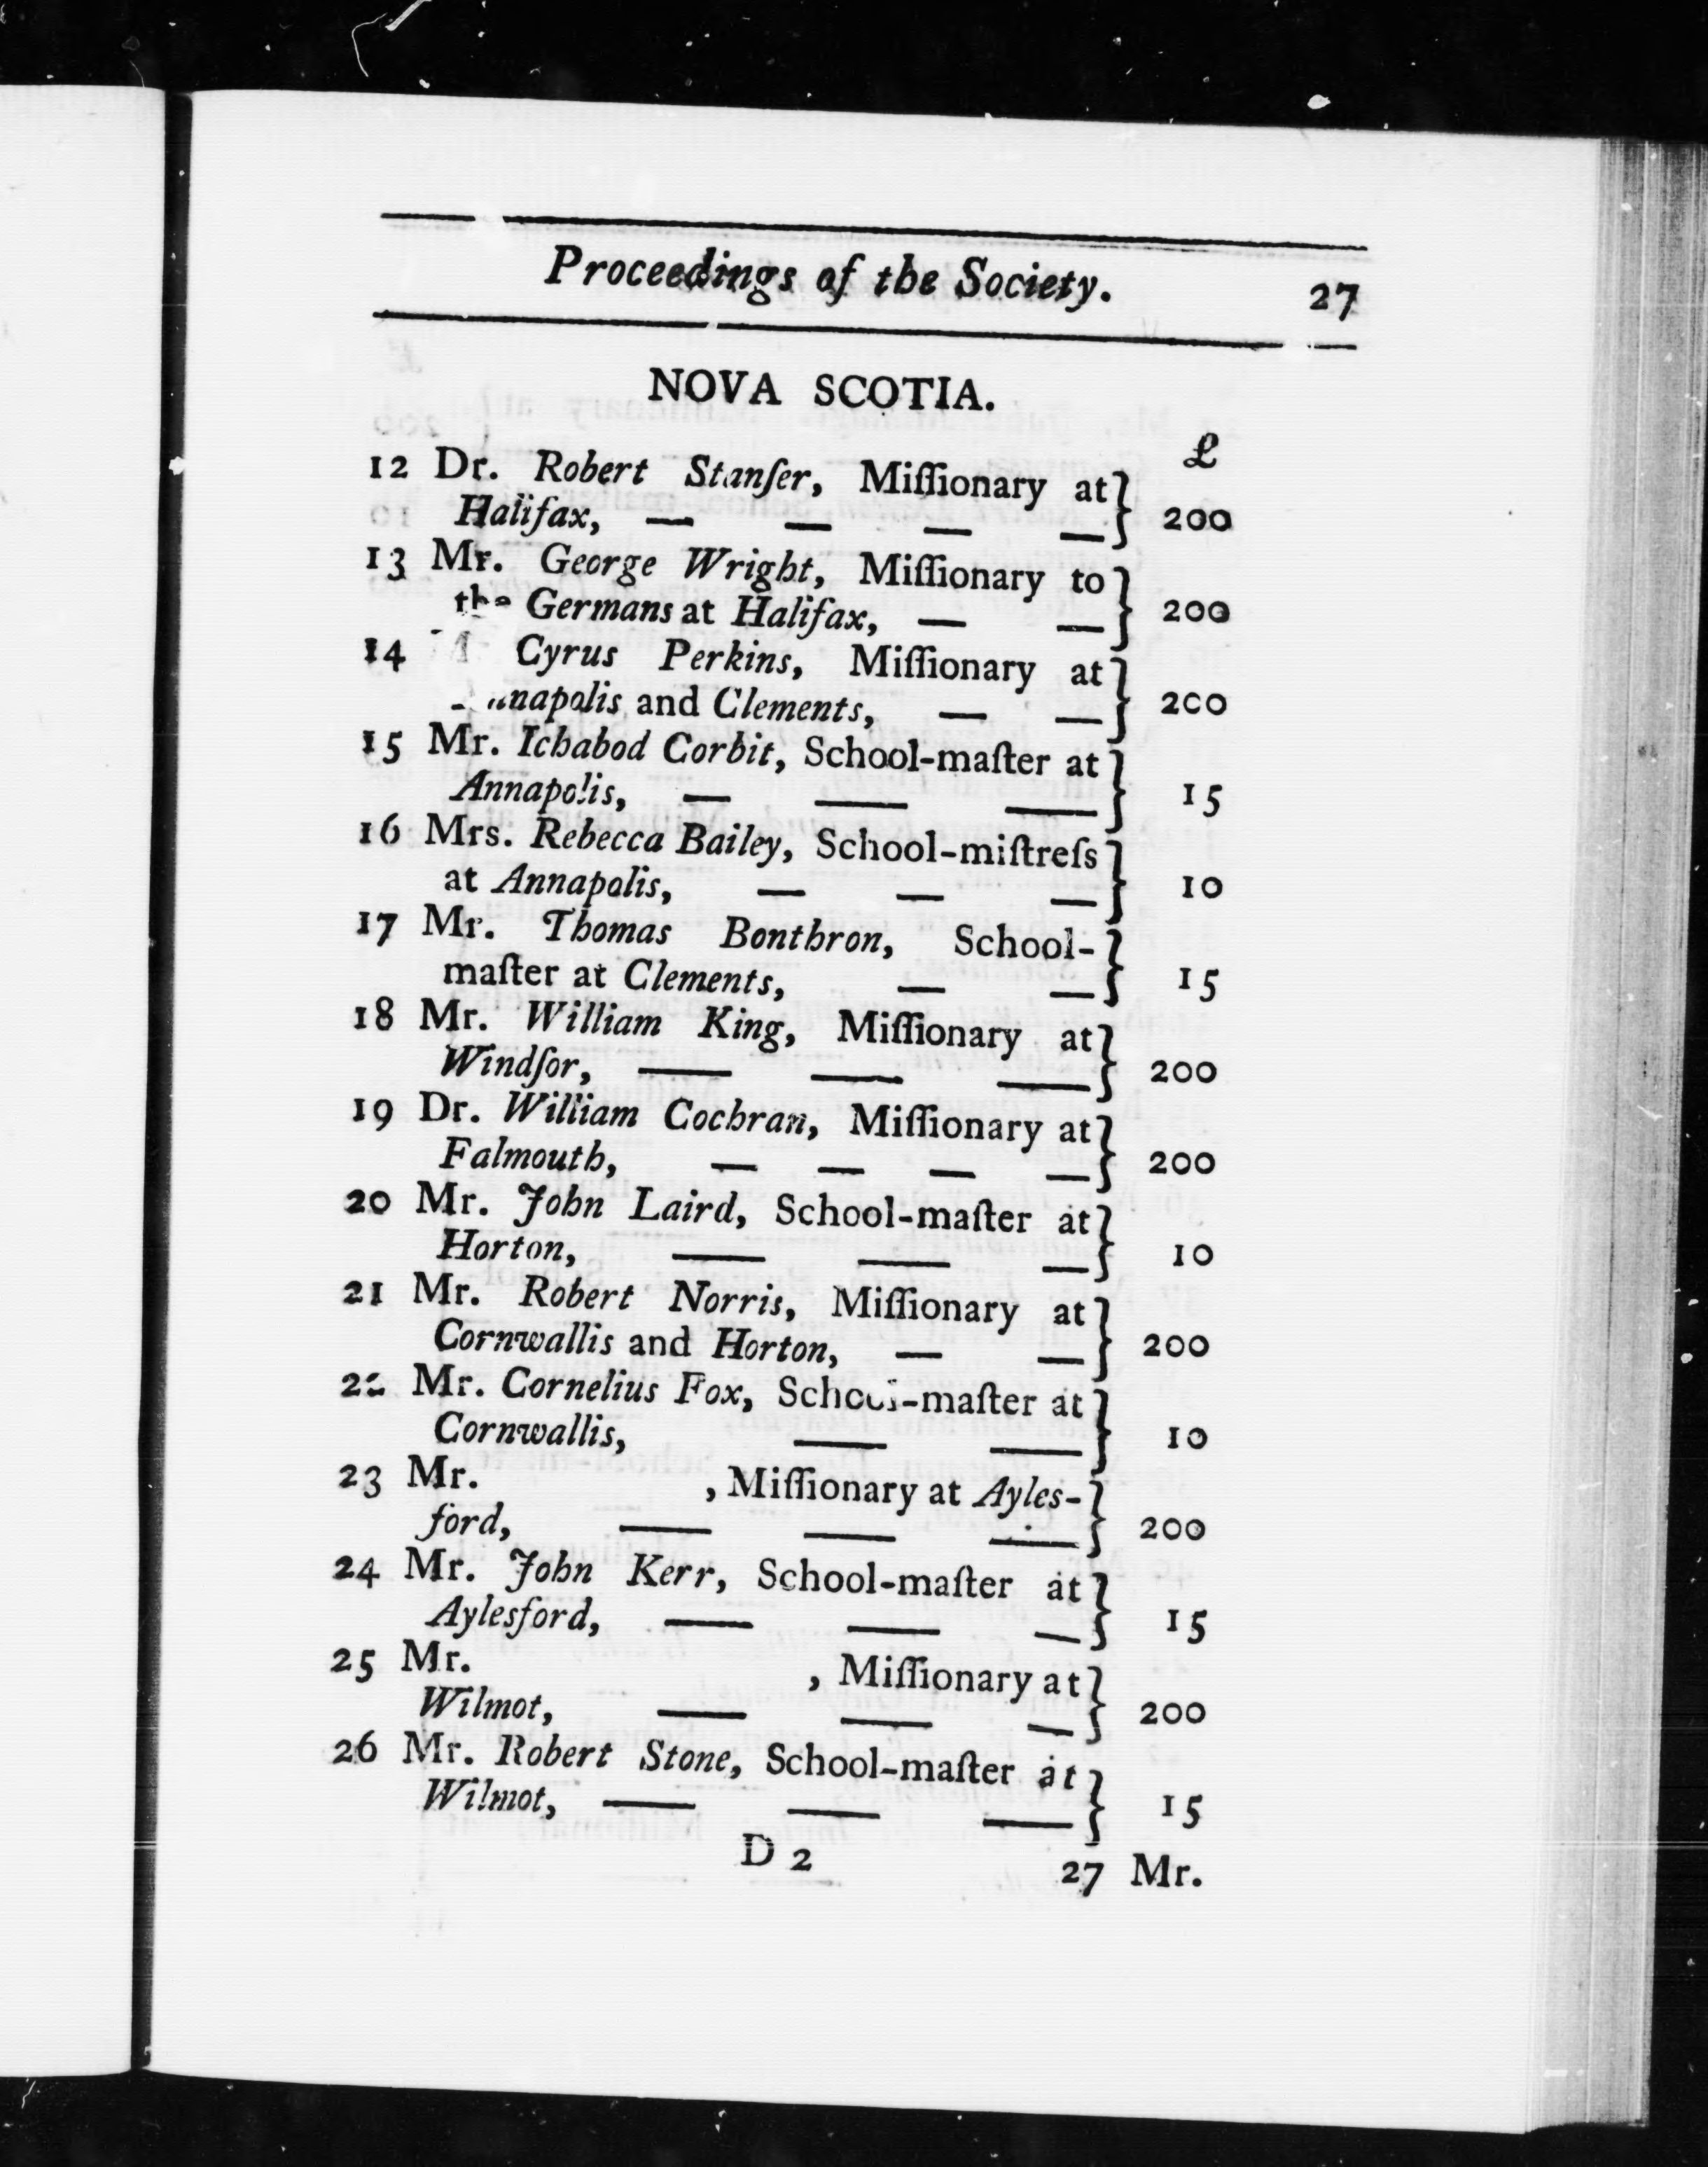 Proceedings of the Society. 27
NOVA SCOTIA.
£
12 Dr. Robert Stanſer, Miſſionary at
Halifax, — — — — } 200
13 Mr. George Wright, Miſſionary to
the Germans at Halifax, — — } 200
14 Cyrus Perkins, Miſſionary at
and Clements, — — } 200
15 Mr. Ichabod Corbit, School-maſter at
Annapolis, — — — } 15
16 Mrs. Rebecca Bailey, School-miſtreſs
at Annapolis, — — — } 10
17 Mr. Thomas Bonthron, School-
maſter at Clements, — — } 15
18 Mr. William King, Miſſionary at
Windſor, — — — } 200
19 Dr. William Cochran, Miſſionary at
Falmouth, — — — — } 200
20 Mr. John Laird, School-maſter at
Horton, — — — } 10
21 Mr. Robert Norris, Miſſionary at
Cornwallis and Horton, — — } 200
22 Mr. Cornelius Fox, School-maſter at
Cornwallis, — — } 10
23 Mr. , Miſſionary at Ayles-
ford, — — — } 200
24 Mr. John Kerr, School-maſter at
Aylesford, — — — } 15
25 Mr. , Miſſionary at
Wilmot, — — — } 200
26 Mr. Robert Stone, School-maſter at
Wilmot, — — — } 15
D 2 27 Mr.